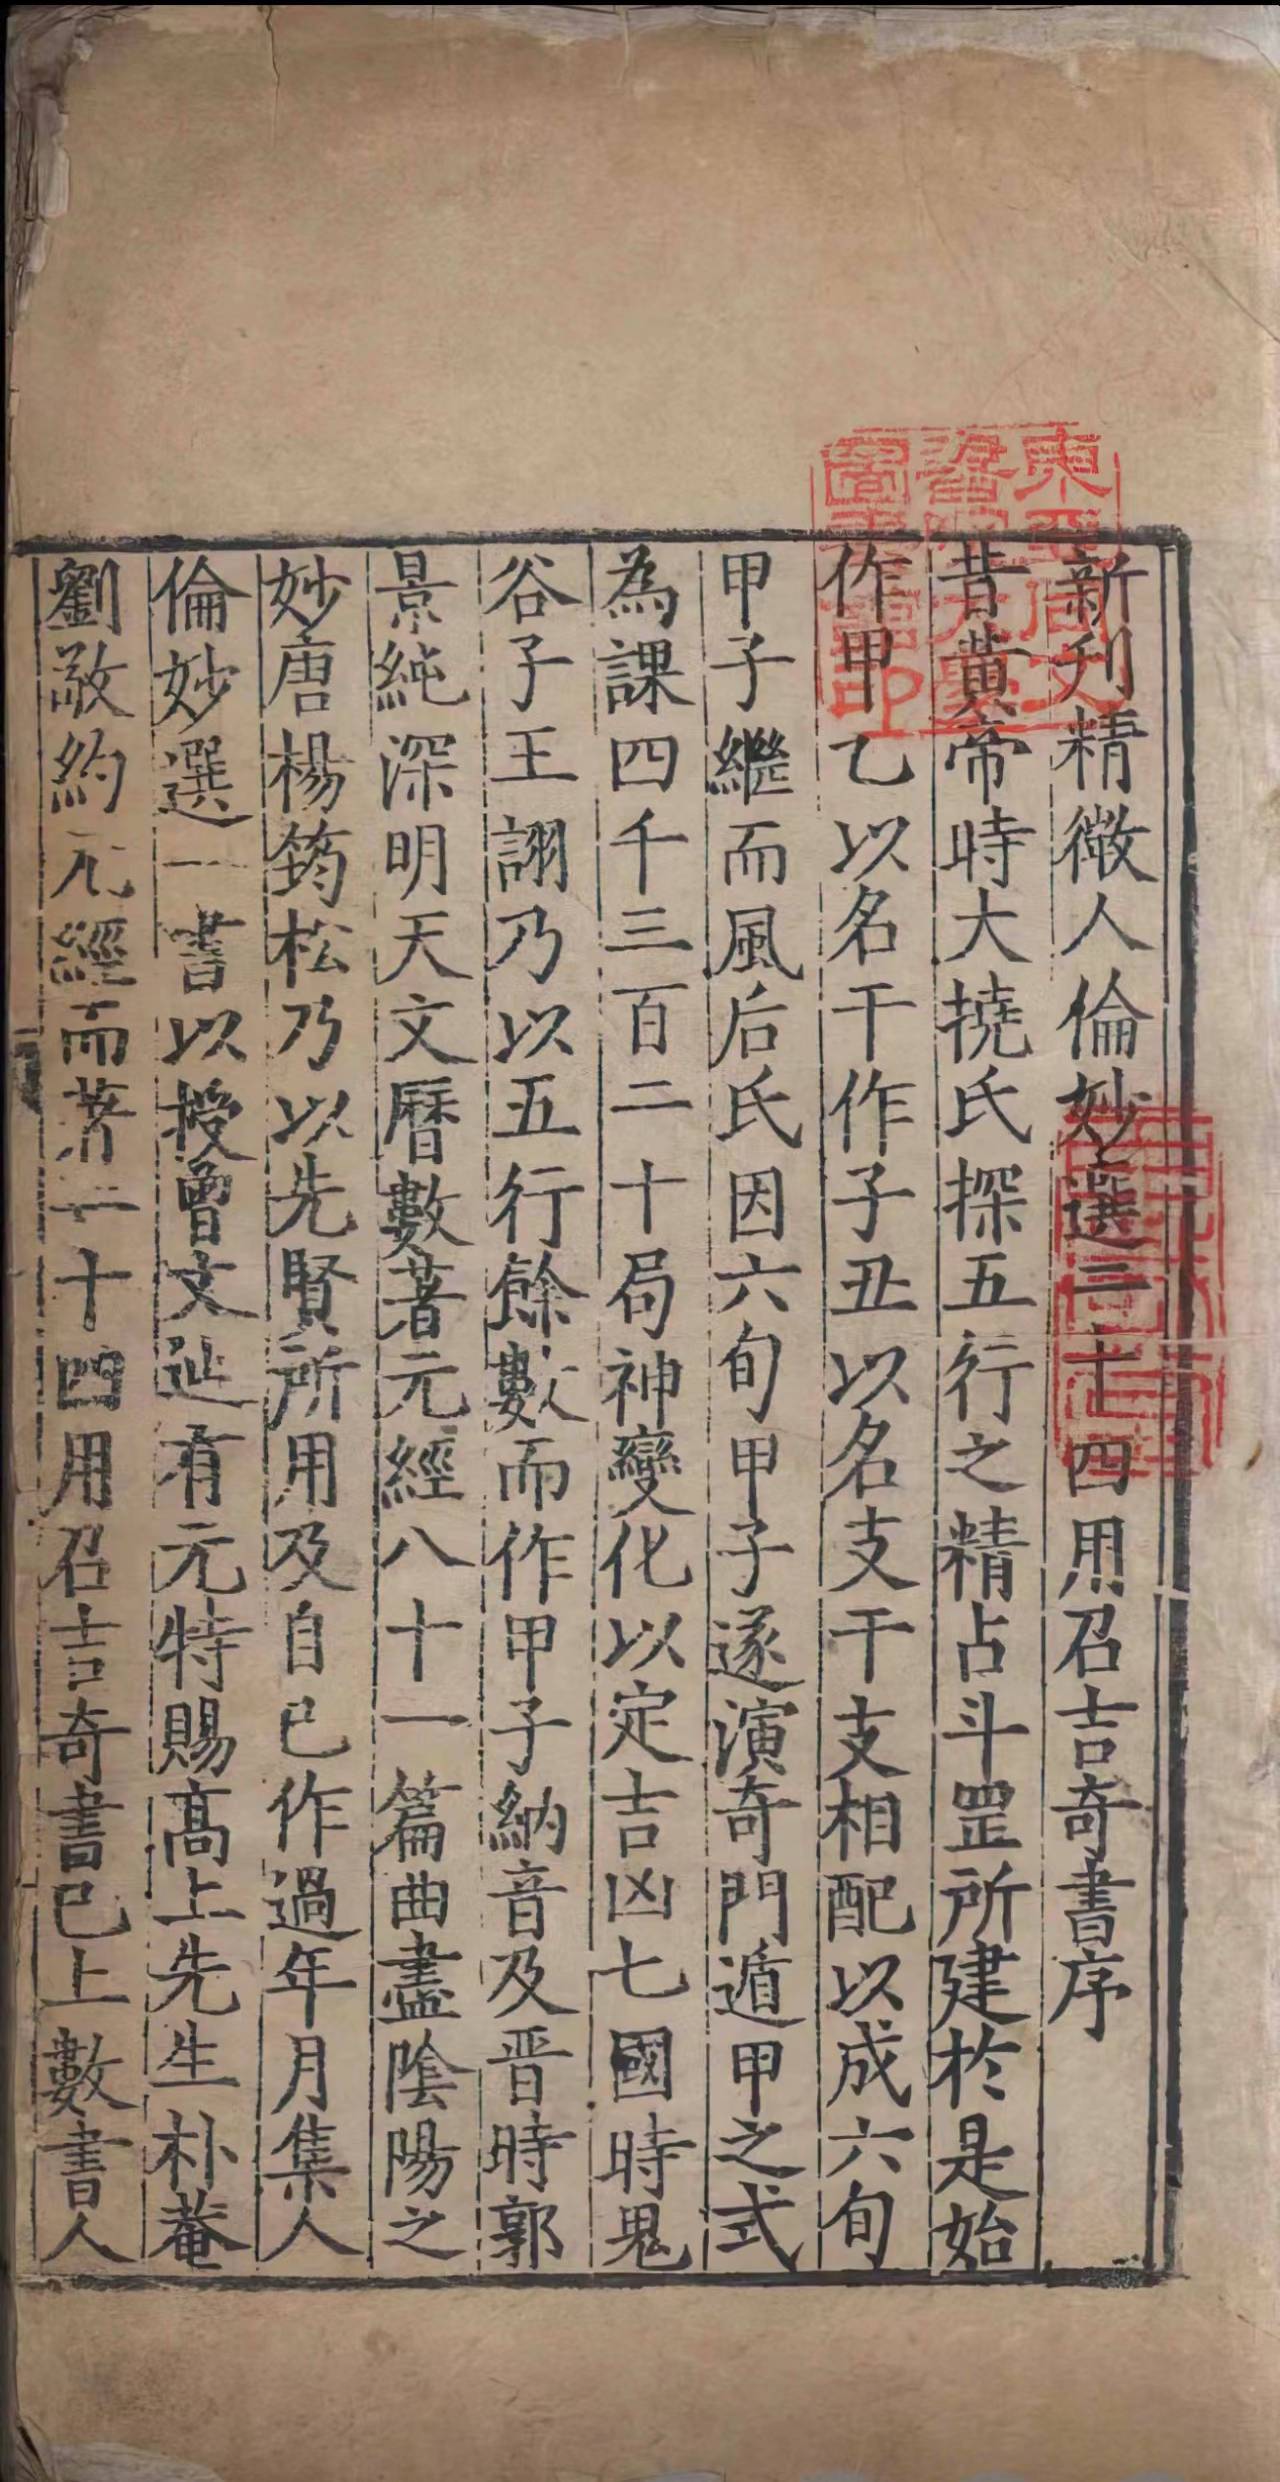 新刋精㣲人倫妙選三十四用召吉奇書序
昔黃帝時大撓氏探五行之精占斗罡所建於是始
作甲乙以名干作子丑以名支干支相配以成六旬
甲子繼而風后氏因六旬甲子遂演奇門遁甲之式
為課四千三百二十局神變化以定吉凶七國時鬼
谷子王詡乃以五行餘數而作甲子納音及晋時郭
景純深明天文曆數著元經八十一篇曲盡陰陽之
妙唐楊筠松乃以先賢所用及自已作過年月集人
倫妙選一書以授曾文辿有元特賜髙上先生朴菴
劉敬約元經而著二十四用召吉奇書已上數書人
東亞同文
書院大
圖書印